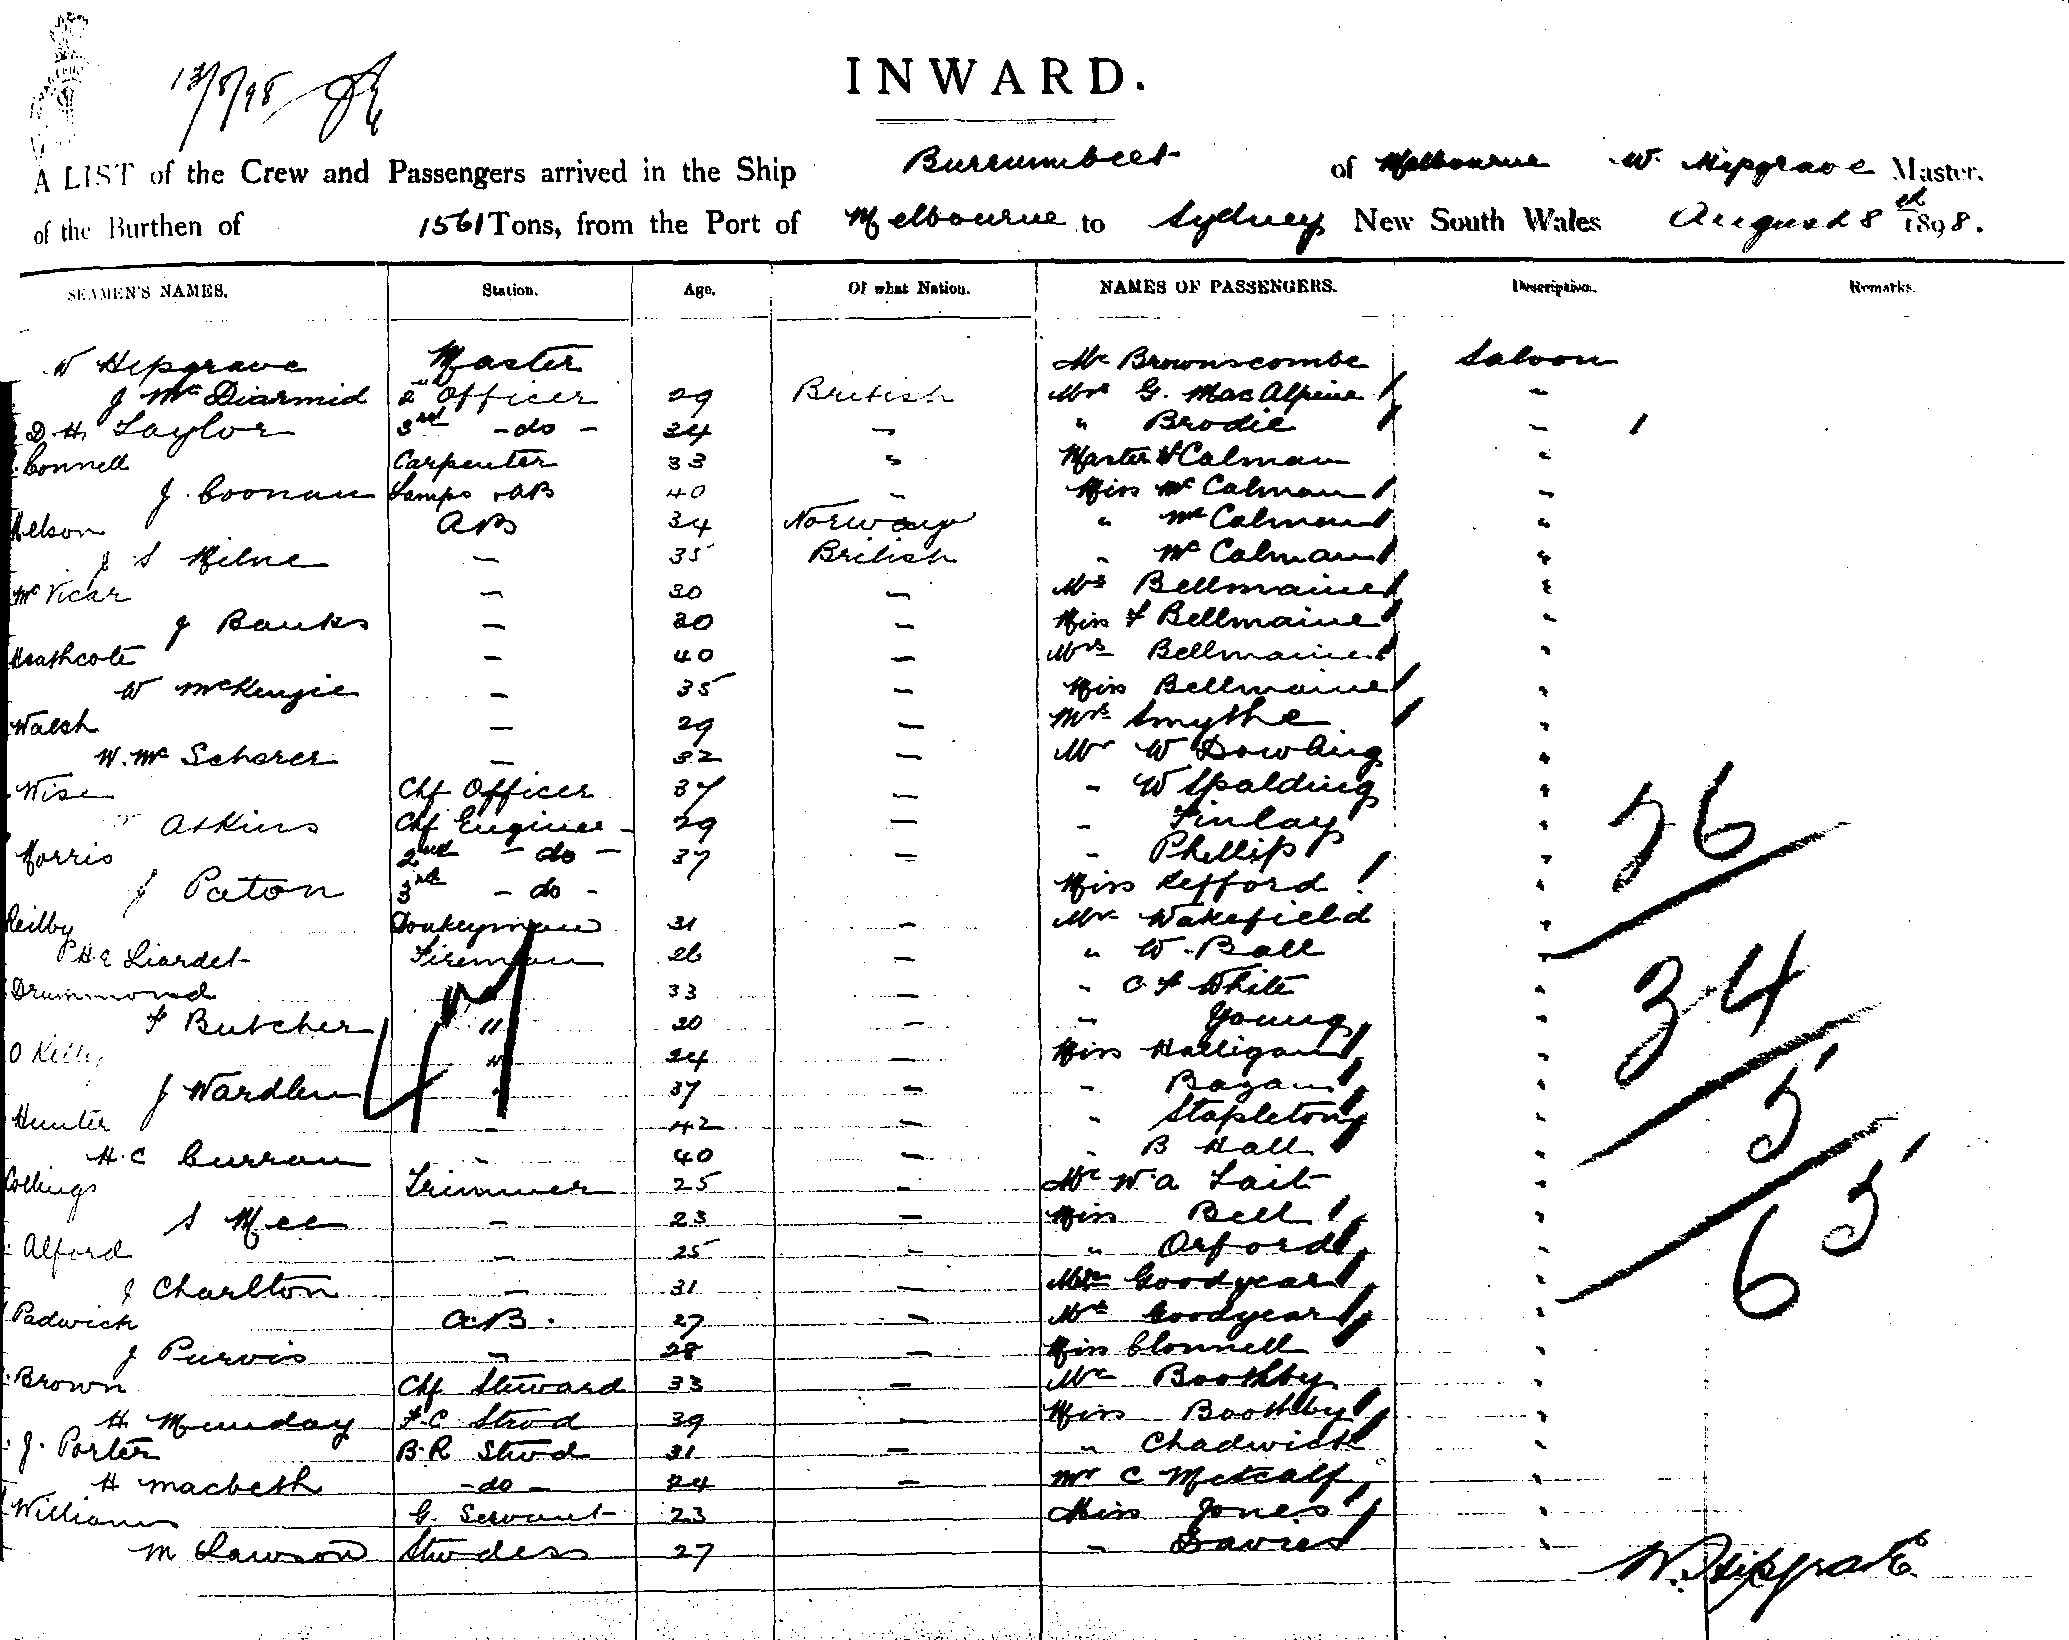 INWARD.
13/8/98
A LIST of the Crew and Passengers arrived in the Ship Burrumbeet of Melbourne W. Hipgrave Master.
of the Burthen of 1561 Tons, from the Port of Melbourne to Sydney New South Wales August 8th 1898.
SEAMEN'S NAMES. Station. Age. Of what Nation. NAMES OF PASSENGERS. Description. Remarks.
W Hipgrave Master Mr Brownscombe Saloon
J McDiarmid 2nd Officer 29 British Mrs G. MacAlpine "
D. H. Taylor 3rd -do- 24 " " Brodie "
Connell Carpenter 33 " Master McCalman "
J. Coonan Lamps & AB 40 " Miss McCalman "
Nelson AB 34 Norway " McCalman "
J S Milne " 35 British " McCalman "
McVicar " 30 " Mr Bellmaine "
J Banks " 30 " Miss F Bellmaine "
Heathcote " 40 " Mrs Bellmaine "
W McKenzie " 35 " Miss Bellmaine "
Walsh " 29 " Mrs Smythe "
W. Mc Scherer " 32 " Mr W Dowling "
Wise Chf Officer 37 " " W Spalding "
Atkins Chf Engineer 29 " " Finlay "
Morris 2nd -do- 37 " " Phillips "
J Paton 3rd -do- Miss Kefford "
Reilby Donkeyman 31 " Mr Wakefield "
P H E Liardet Fireman 26 " " W. Ball "
Drummond " 33 " " C F White "
F Butcher " 30 " " Young "
O Kelly " 24 " Miss Halligan "
J Wardlew " 37 " " Bazan "
Hunter " 42 " " Stapleton "
H. C Curran " 40 " " B Hall "
Collings Trimmer 25 " Mr W. A Tait "
S Mee " 23 " Miss Bell "
Alford " 25 " " Orford "
J Charlton " 31 " Mrs Goodyear "
Padwick A.B. 27 " Mrs Goodyear "
J Purvis " 28 " Miss Clonnell "
Brown Chf Steward 33 " Mr Boothby "
H Munday F.C Stwd 39 " Miss Boothby "
J. Porter B.R Stwd 31 " " Chadwick "
H Macbeth -do- 24 " Mr C Metcalf "
Williams G. Servant 23 Miss Jones "
M Lawson Stwdess 27 " Davies "
36
34
5
5
6
W. Hipgrave